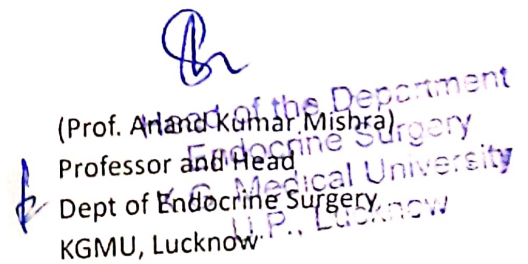 (Prof. Anand Kumar Mishra)
Professor and Head
Dept of Endocrine Surgery
KGMU, Lucknow
Head of the Department
Endocrine Surgery
K.G. Medical University
U.P., Lucknow